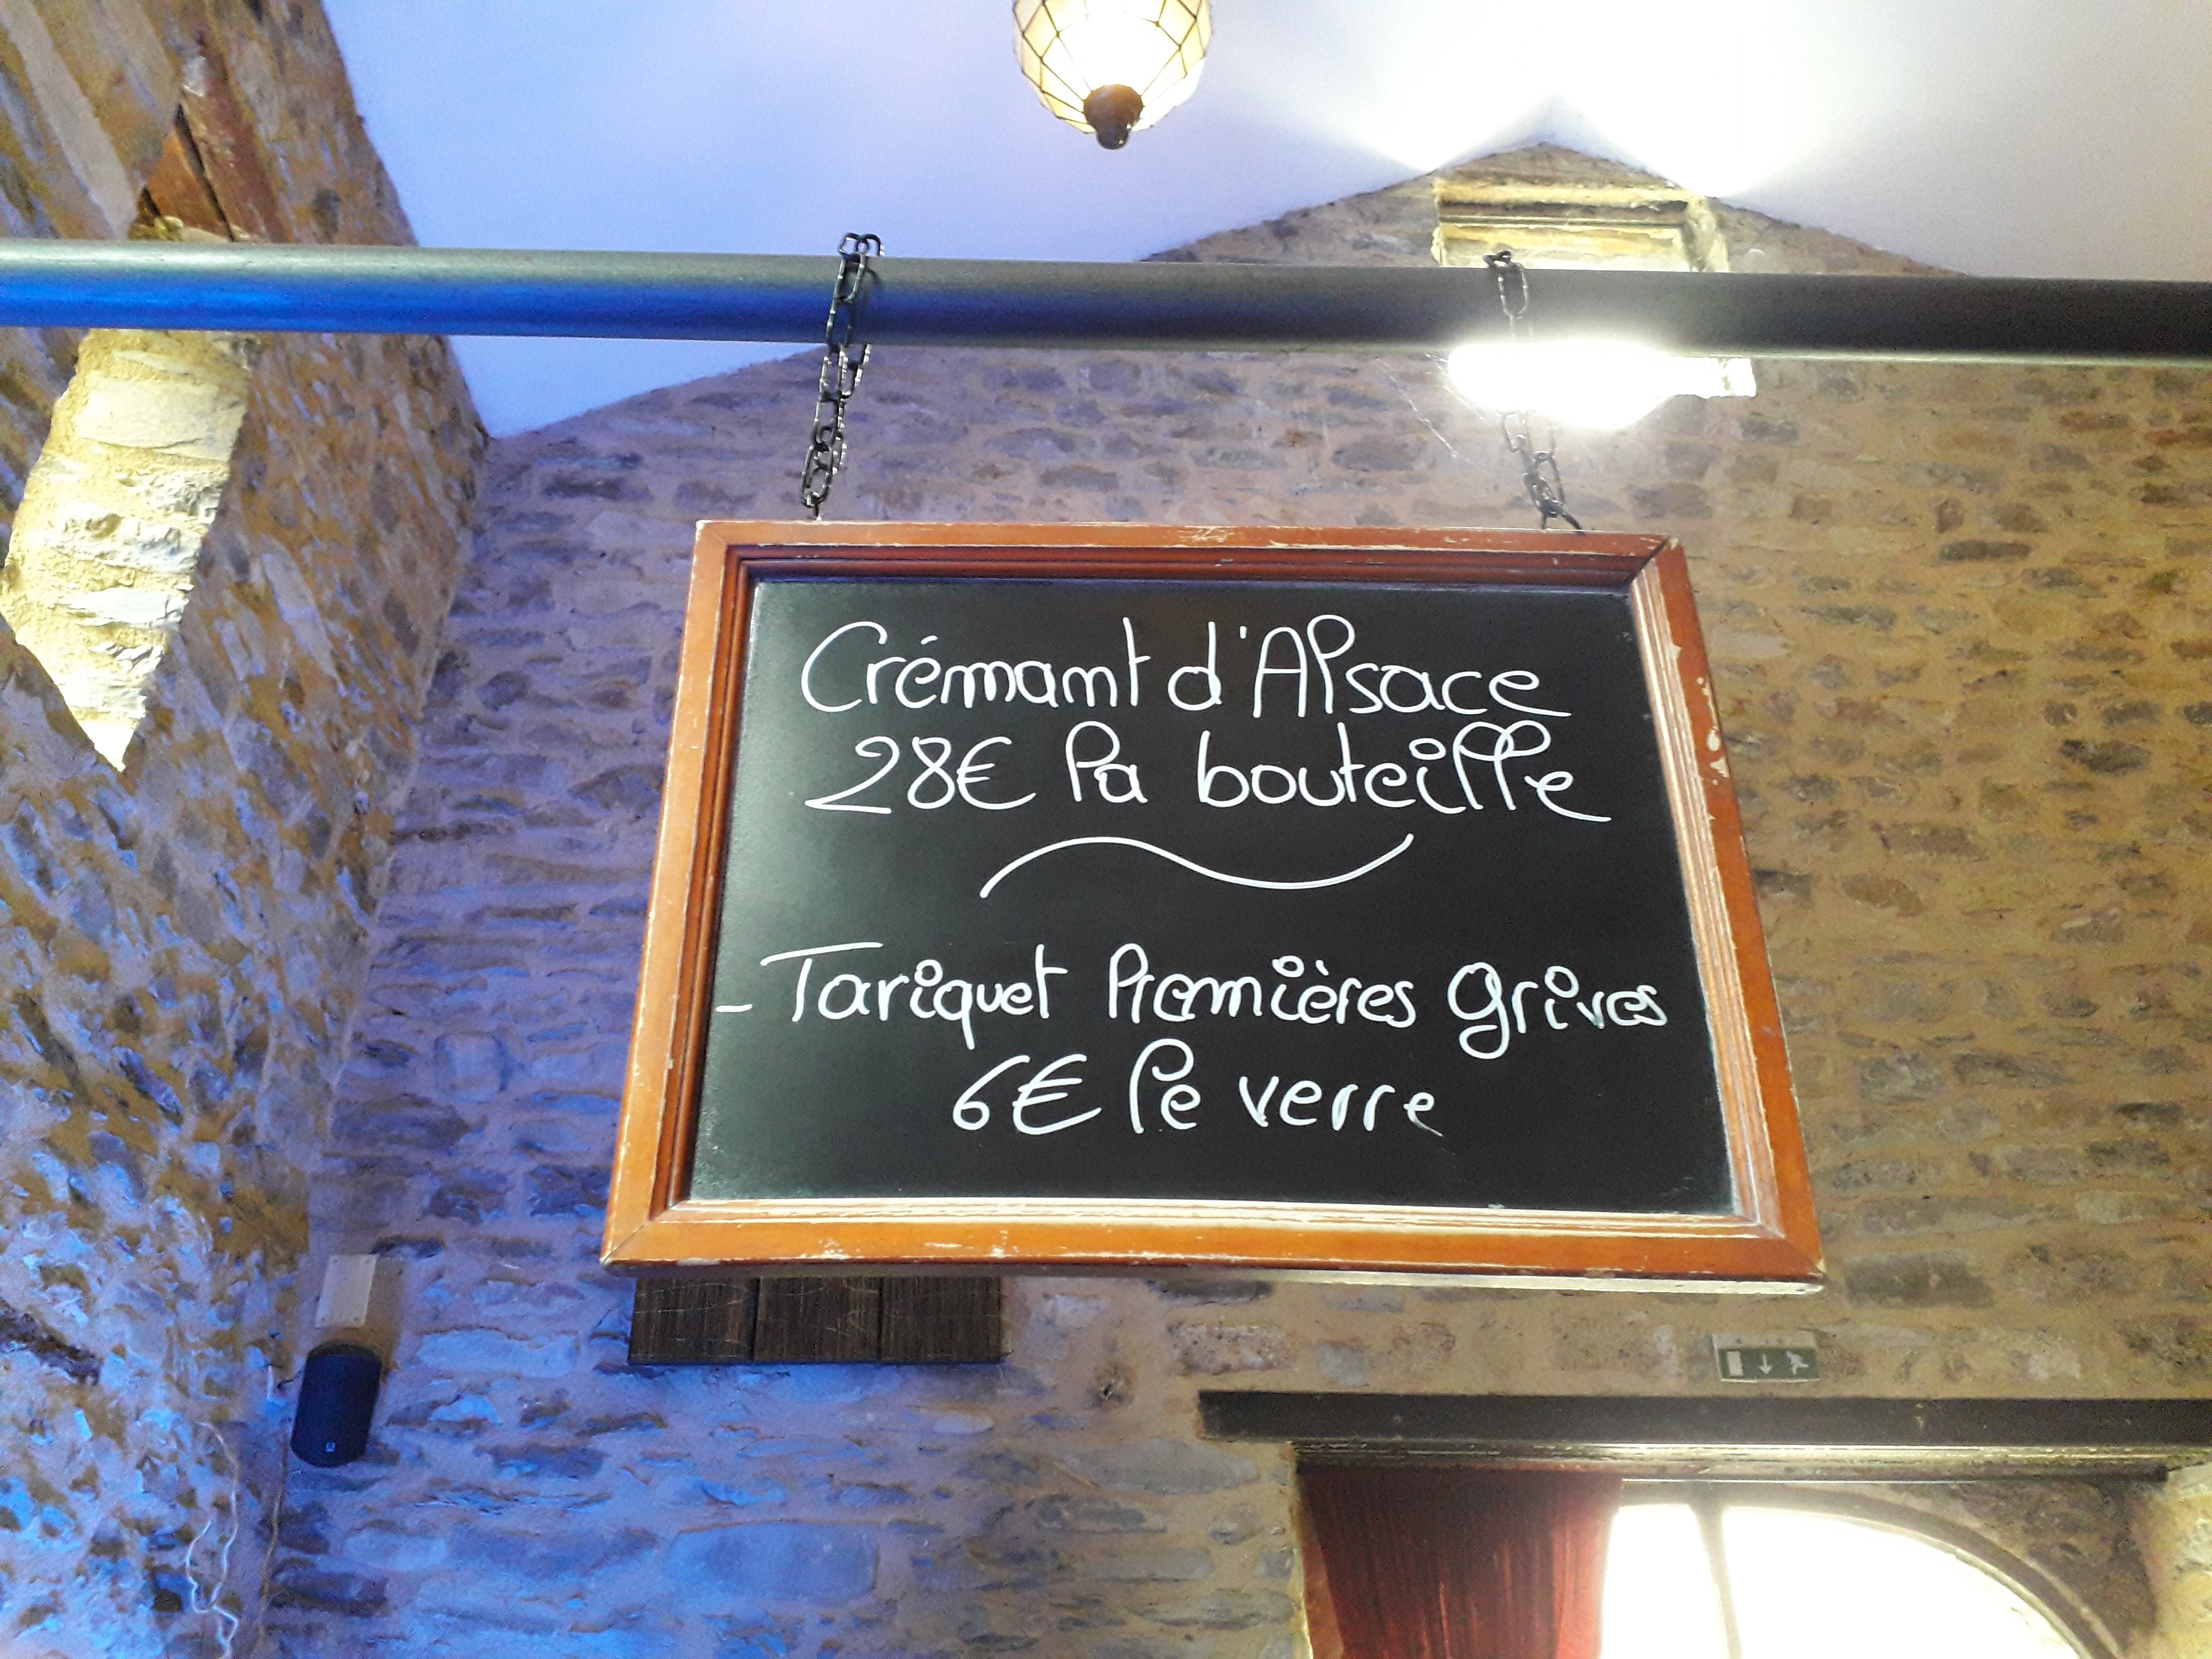 Crémant d'Alsace
28€ la bouteille
- Tariquet Premières grives
6€ le verre